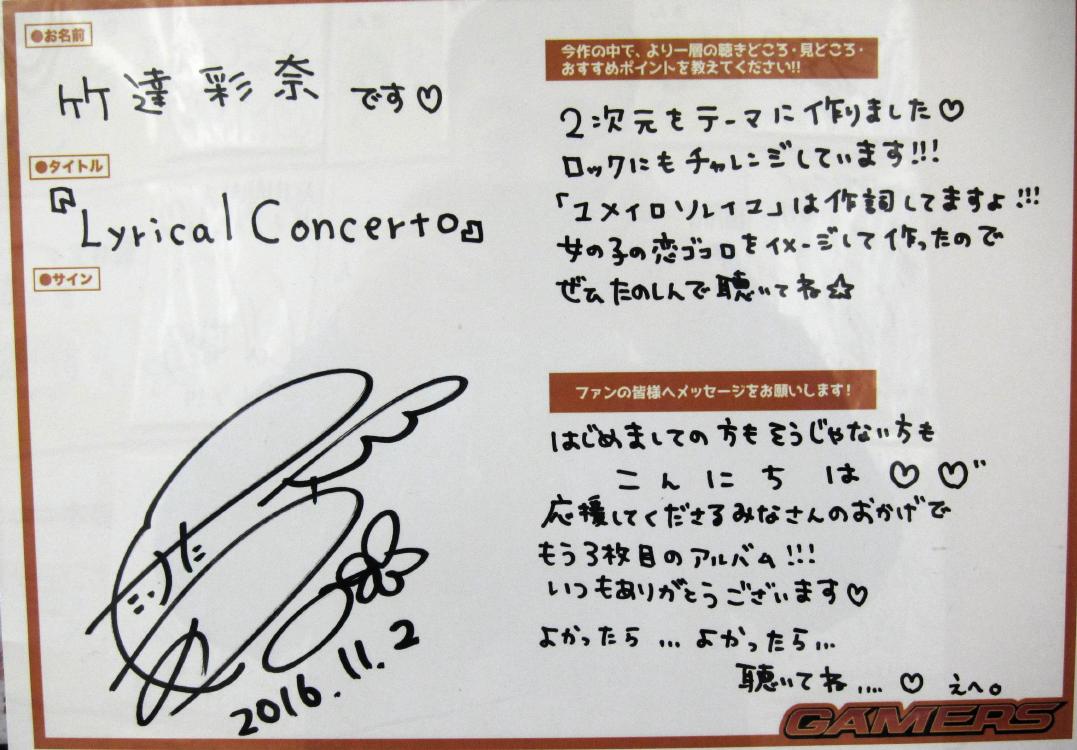 ●お名前
竹達彩奈 です♡
●タイトル
『Lyrical Concerto』
●サイン
2016.11.2
今作の中で、より一層の聴きどころ・見どころ・
おすすめポイントを教えてください!!
2次元をテーマに作りました♡
ロックにもチャレンジしています!!!
「ユメイロソレイユ」は作詞してますよ!!!
女の子の恋ゴコロをイメージして作ったので
ぜひたのしんで聴いてね☆
ファンの皆様へメッセージをお願いします!
はじめましての方もそうじゃない方も
こんにちは♡♡"
応援してくださるみなさんのおかげで
もう3枚目のアルバム!!!
いつもありがとうございます♡
よかったら…よかったら…
聴いてね…. ♡ えへ。
GAMERS